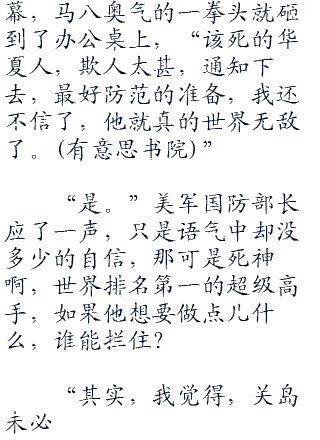 幕，马八奥气的一拳头就砸
到了办公桌上，“该死的华
夏人，欺人太甚，通知下
去，最好防范的准备，我还
不信了，他就真的世界无敌
了。(有意思书院)”
“是。”美军国防部长
应了一声，只是语气中却没
多少的自信，那可是死神
啊，世界排名第一的超级高
手，如果他想要做点儿什
么，谁能拦住？
“其实，我觉得，关岛
未必